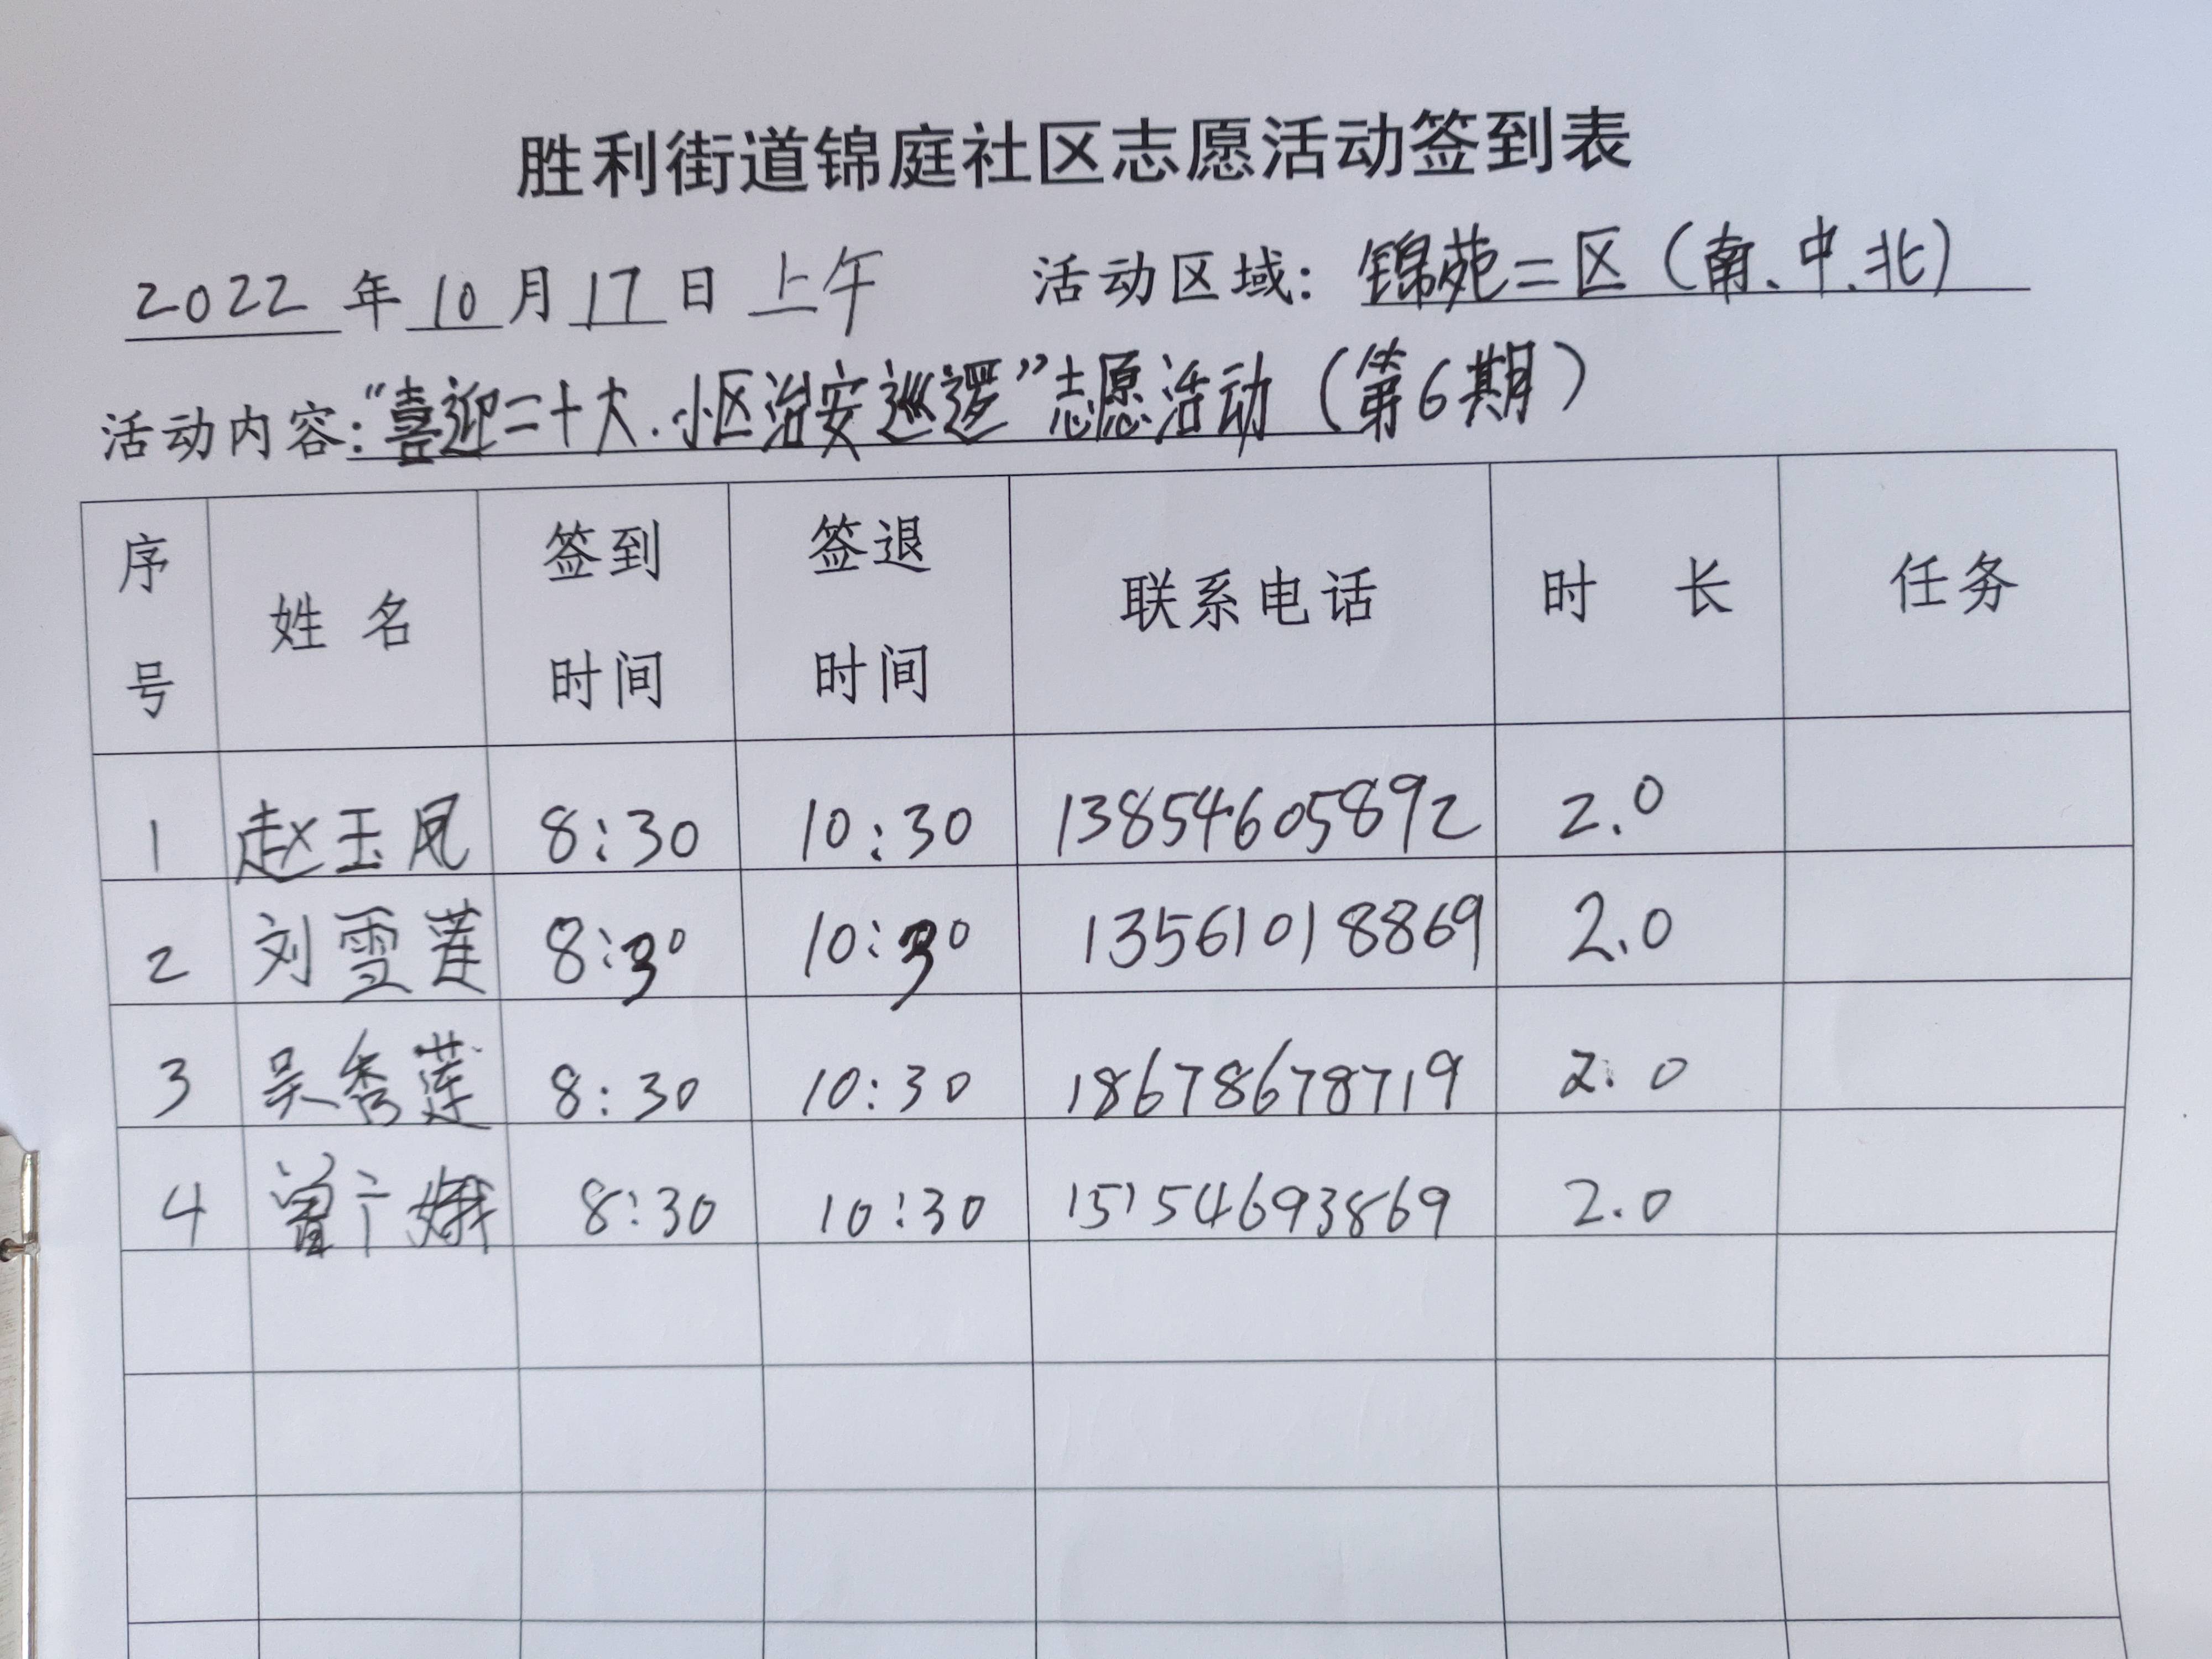 胜利街道锦庭社区志愿活动签到表
2022 年 10 月 17 日 上午 活动区域：锦苑二区（南、中、北）
活动内容：“喜迎二十大、小区治安巡逻”志愿活动（第6期）
序号 姓名 签到时间 签退时间 联系电话 时长 任务
1 赵玉凤 8:30 10:30 13854605892 2.0
2 刘雪莲 8:30 10:30 13561018869 2.0
3 吴秀莲 8:30 10:30 18678678719 2.0
4 曾广娥 8:30 10:30 15154693869 2.0